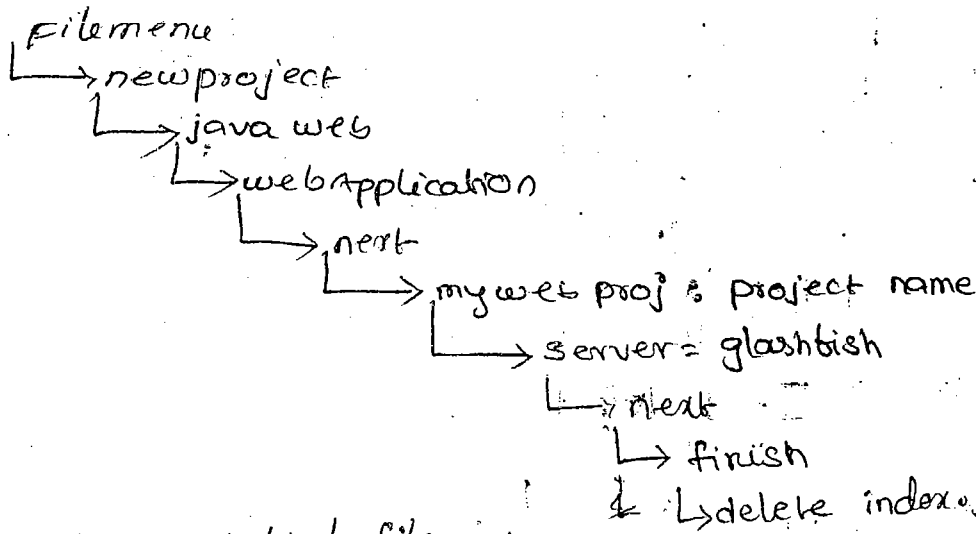 Filemenu
newproject
java web
webApplication
next
mywebproj : project name
server = glashbish
next
finish
delete index.
file